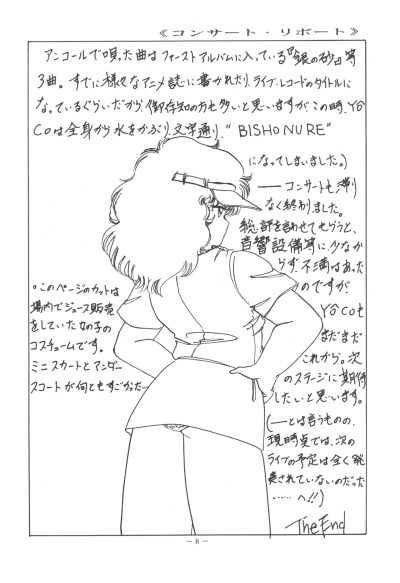 《コンサート・リポート》
アンコールで唄った曲はファーストアルバムに入っている『銀の砂』等
3曲。すでに様々なアニメ誌に書かれたり、ライブ・レコードのタイトルに
なっているぐらいだから、御存知の方も多いと思いますが、この時、YO
COは全身から水をかぶり、文字通り、"BISHONURE"
になってしまいました。)
――コンサートも滞り
なく終わりました。
総評を言わせてもらうと、
音響設備等に、少なか
らず、不満はあった
のですが、
YOCOも
まだまだ
これから。次
のステージに期待
したいと思います。
(――とは言うものの、
現時点では、次の
ライブの予定は全く発
表されていないのだった
……へ!!)
The End
○このページのカットは
場内でジュース販売
をしていた女の子の
コスチュームです。
ミニスカートとアンダー
スコートが何ともすごかった…
－8－